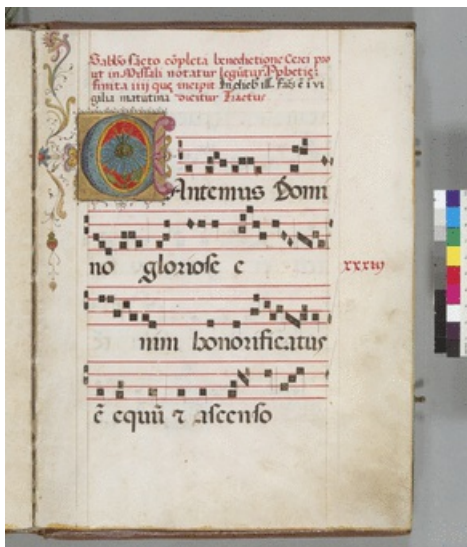 Sabbo sc̄to cōpleta benedictione Cerei pro
ut in Missali notatur legūtur Pphetie:
finita iiii que incipit In dieb ill. ē ī vi
gilia matutina dicitur Tractus
CAntemus Domi
no gloriose e
xxxiiij
nim honorificatus
ē equū ⁊ ascenso